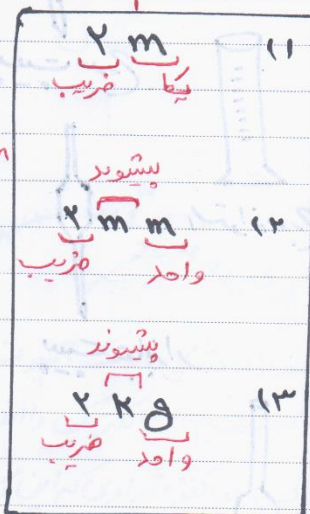 ۱) ۲ m
ضریب یکا
پیشوند
۲) ۲ m m
ضریب واحد
پیشوند
۳) ۲ K g
ضریب واحد